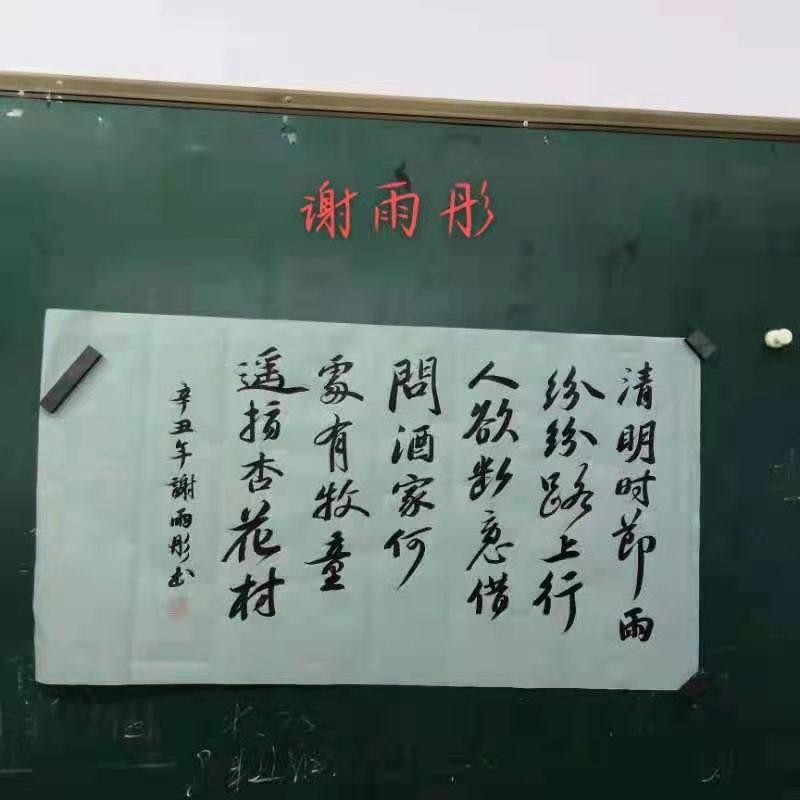 谢雨彤
清明时節雨
纷纷路上行
人欲断魂借
問酒家何
處有牧童
遥指杏花村
辛丑年謝雨彤书